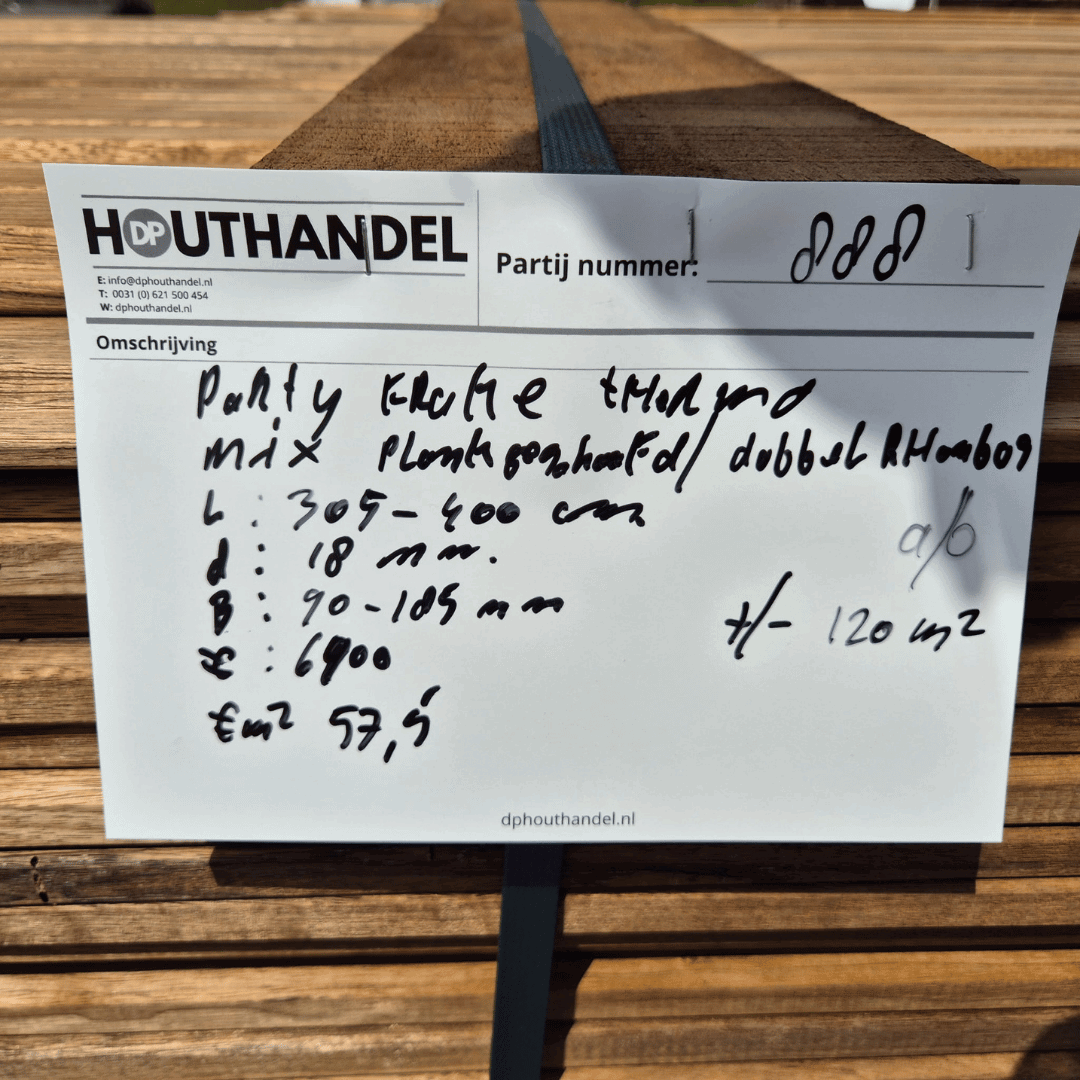 HOUTHANDEL
DP
E: info@dphouthandel.nl
T: 0031 (0) 621 500 454
W: dphouthandel.nl
Partij nummer: 888
Omschrijving
Party
mix dubbel
L : 305 - 400 cm
d : 18 mm.
a/b
B : 90 - 185 mm
+/- 120 m²
: 6900
€ m² 57,5
dphouthandel.nl